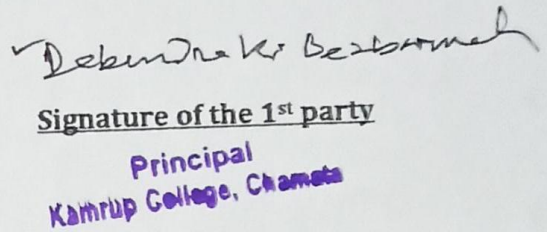 Debendra Kr Bezbaruah
Signature of the 1st party
Principal
Kamrup College, Chamata